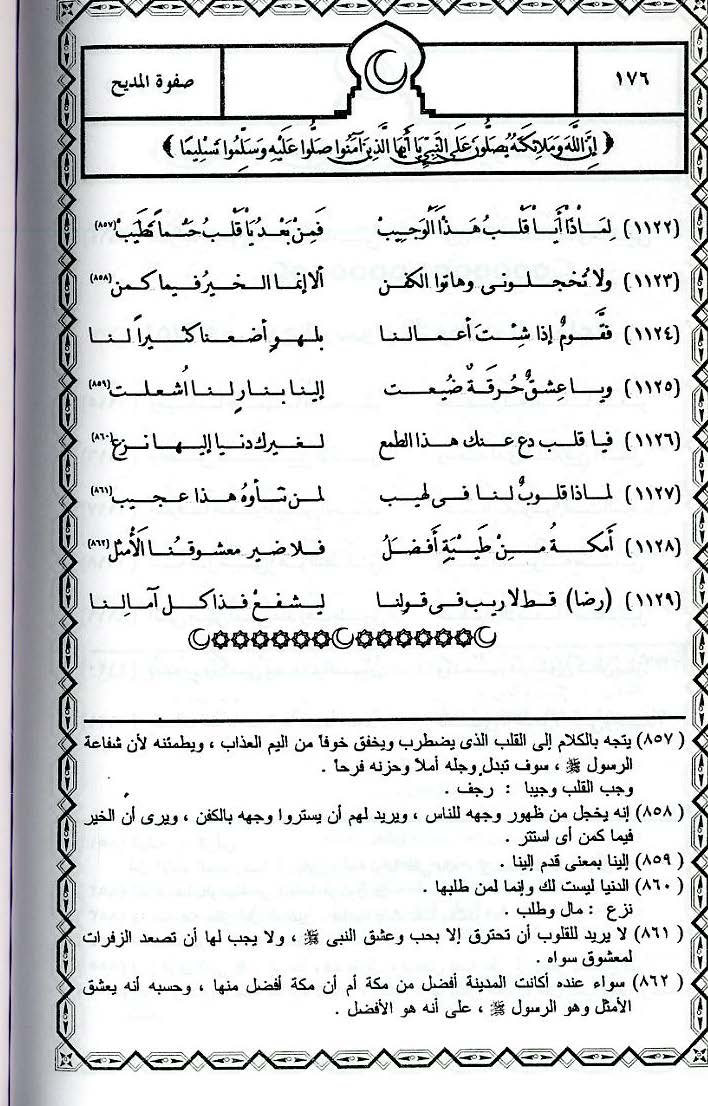 ١٧٦ صفوة المديح
﴿ إِنَّ اللَّهَ وَمَلَائِكَتَهُ يُصَلُّونَ عَلَى النَّبِيِّ يَا أَيُّهَا الَّذِينَ آمَنُوا صَلُّوا عَلَيْهِ وَسَلِّمُوا تَسْلِيمًا ﴾
(١١٢٢) لِمَاذَا أَيَا قَلْبُ هَذَا الْوَجِيبْ فَمِنْ بَعْدُ يَا قَلْبُ حَتْماً تَطِيبْ (٨٥٧)
(١١٢٣) ولا تُخجلونى وهاتوا الكفن ألا إنما الخيرُ فيما كمن (٨٥٨)
(١١٢٤) فَقَوِّمْ إذا شِئْتَ أعمالنا بلهوٍ أضعنا كثيراً لنا
(١١٢٥) ويا عِشقُ حُرقةٌ ضُيعت إلينا بنارٍ لنا أُشعلت (٨٥٩)
(١١٢٦) فيا قلب دع عنك هذا الطمع لغيرك دنيا إليها نزع (٨٦٠)
(١١٢٧) لماذا قلوبٌ لنا فى لهيب لمن تأوهُ هذا عجيب (٨٦١)
(١١٢٨) أمكةُ مِنْ طَيْبَةٍ أفضلُ فلا ضير معشوقُنا الأَمْثل (٨٦٢)
(١١٢٩) (رضا) قط لا ريب فى قولنا ليشفعْ فذا كل آمالنا
(٨٥٧) يتجه بالكلام إلى القلب الذى يضطرب ويخفق خوفاً من اليم العذاب ، ويطمئنه لأن شفاعة
الرسول ﷺ ، سوف تبدل وجله أملاً وحزنه فرحاً .
وجب القلب وجيبا : رجف .
(٨٥٨) إنه يخجل من ظهور وجهه للناس ، ويريد لهم أن يستروا وجهه بالكفن ، ويرى أن الخير
فيما كمن أى استتر .
(٨٥٩) إلينا بمعنى قدم إلينا .
(٨٦٠) الدنيا ليست لك وإنما لمن طلبها .
نزع : مال وطلب .
(٨٦١) لا يريد للقلوب أن تحترق إلا بحب وعشق النبى ﷺ ، ولا يجب لها أن تصعد الزفرات
لمعشوق سواه .
(٨٦٢) سواء عنده أكانت المدينة أفضل من مكة أم أن مكة أفضل منها ، وحسبه أنه يعشق
الأمثل وهو الرسول ﷺ ، على أنه هو الأفضل .